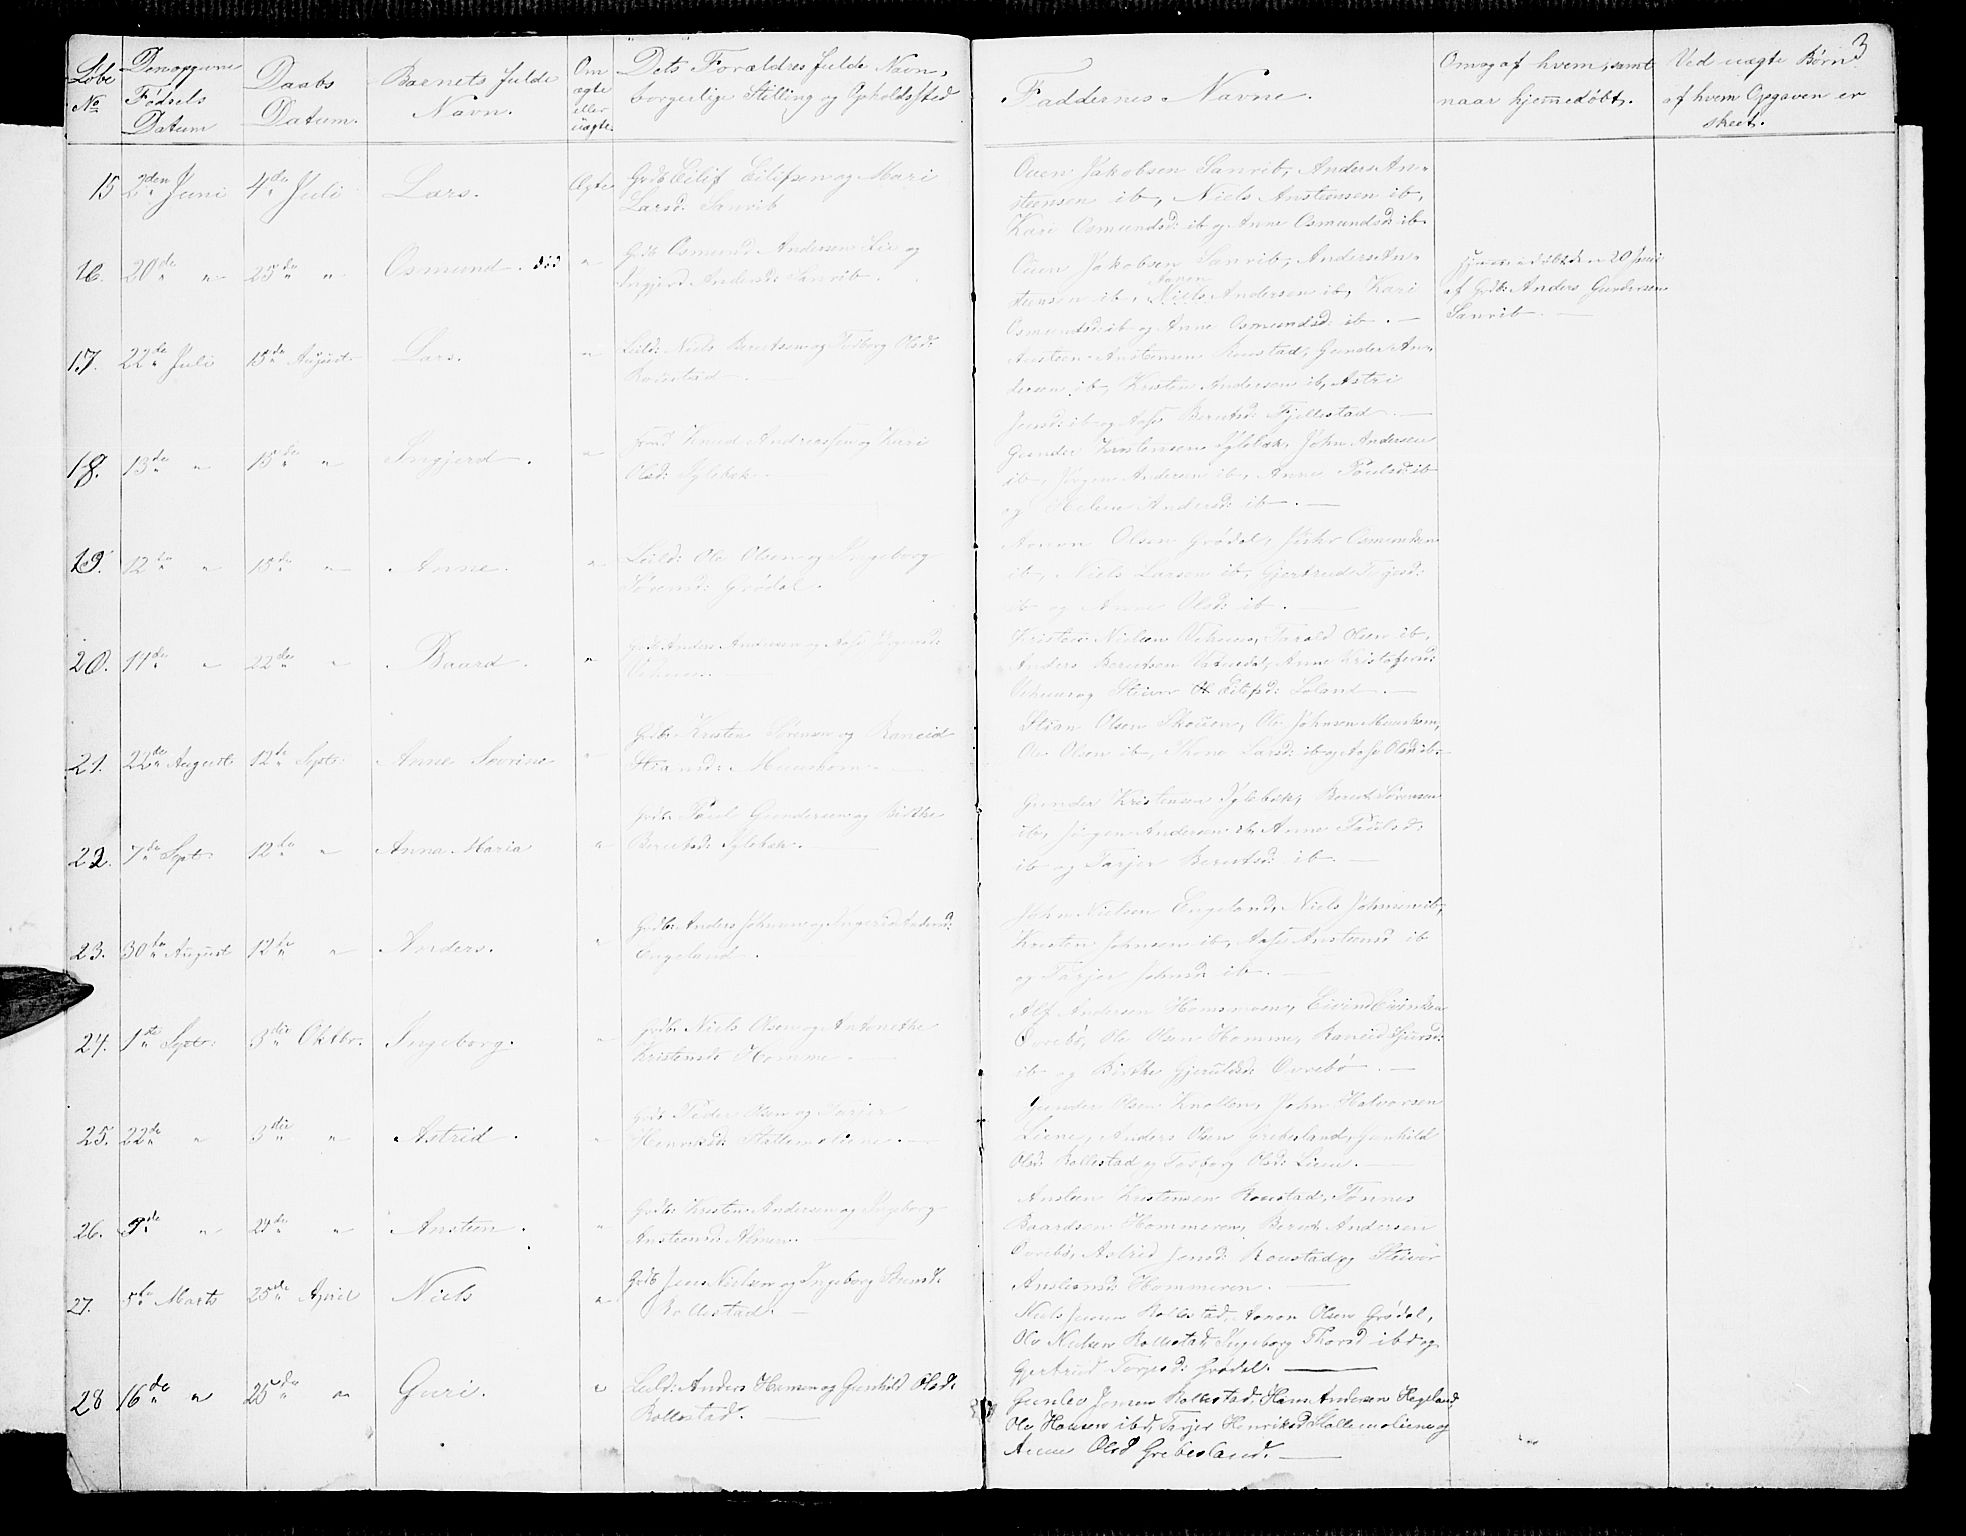 3
Løbe No
Den opgivne Fødsels Datum
Daabs Datum.
Barnets fulde Navn.
Om ægte eller uægte.
Dets Forældres fulde Navn, borgerlige Stilling og Opholdssted
Faddernes Navne.
Om og af hvem, samt naar hjemmedøbt.
Ved uægte Børn af hvem Opgaven er skeet.
15 2den Juni 4de Juli Lars. Ægte Gdb Eilif Eilifsen og Mari
Larsd. Sanrib
Ouen Jakobsen Sanrib, Anders An-
steensen ib, Niels Ansteensen ib,
Kari Osmundsd: ib og Anne Osmundsd: ib
16. 20de " 25de " Osmund. død " Gdb Osmund Andersen Lie og
Ingjerd Andersd: Sanrib.
Ouen Jakobsen Sanrib, Anders An-
steensen ib, Niels Andersen ib, Kari
Osmundsd: ib og Anne Osmundsd: ib.
hjemmedøbt den 20 Juni
af Gdb: Anders Gundersen
Sanrib.
17. 22de Juli 15de August Lars. " Leild: Niels Berntsen og Torborg Olsd:
Roustad.
Ansteen Ansteensen Roustad, Gunder An-
dersen ib, Kristen Andersen ib, Astri
Jensd: ib og Aase Berntsd: Fjellestad.
18. 13de " 15de " Ingjerd. " Knud Andreassen og Kari
Olsd: Iglebæk.
Gunder Kristensen Iglebæk, John Andersen
ib, Jørgen Andersen ib, Anne Paulsd: ib
og Helene Andersd: ib.
19. 12te " 15de " Anne. " Leild: Ole Olsen og Ingeborg
Sørensd: Grødal.
Aanon Olsen Grødal, Osmundsen
ib, Niels Larsen ib, Gjertrud Torjesd:
ib og Anne Olsd: ib.
20. 17de " 22de " Baard. " Gdb: Anders Andersen og Aase
Kristen Nielsen Taral Olsen ib,
Anders Berntsen Anne Kristofersd:
og Steinor Eilifsd: Løland.
21. 22de August 12te Septr: Anne Severine " Gdb: Kristen Sørensen og Raneid
Stiansd: Muushom.
Stian Olsen Skouen, Ole Johnsen Muushom,
Ole Olsen ib, Thone Larsd: ib og Aase Olsd ib:
22. 7de Sept: 12te " Anna Maria " Gdb: Poul Gundersen og Birthe
Berntsd: Iglebæk.
Gunder Kristensen Iglebæk, Bernt Sørensen
ib, Jørgen Andersen ib, Anne Poulsd:
ib og Tarjer Berntsd: ib.
23. 30te August 12te " Anders. " Gdb: Anders Johnsen og Ingerid Andersd:
Engeland.
John Nielsen Engeland, Niels Johnsen ib,
Kristen Johnsen ib, Aase Ansteensd ib
og Tarjer Johnsd: ib.
24. 1ste Septr: 3die Oktbr: Ingeborg. " Gdb: Niels Olsen og Antonethe
Kristensd: Homme.
Alf Andersen Homsmoen, Eivind Eivindsen
Øvrebø, Ole Olsen Homme, Raneid Sjursd:
ib og Birthe Gjeruldsd: Øvrebø.
25. 22de " 3die " Astrid. " Gdb: Peder Olsen og Tarjer
Henriksd: Stallemoliene.
Gunder Olsen Knollen, John Halvorsen
Liene, Anders Olsen Grebesland, Gunhild
Olsd: Rollestad og Torborg Olsd: Liene.
26. 9de " 24de " Ansten. " Gdb: Kristen Andersen og Ingeborg
Ansteensd: Almen.
Ansteen Kristensen Roustad, Tønnes
Baardsen Hommeren, Bernt Andersen
Øvrebø, Astrid Jensd: Roustad og Steinor
Ansteensd: Hommeren.
27. 5te Marts 25de April Niels " Gdb Jens Nielsen og Ingeborg
Rollestad.
Niels Jensen Rollestad, Aanon Olsen Grødal,
Ole Nielsen Rollestad, Ingeborg Thorsd ibd og
Gjertrud Torjesd: Grødal.
28 16de " 25de " Guri. " Leild: Anders Hansen og Gunhild Olsd:
Rollestad.
Gunlev Jensen Rollestad, Hans Andersen Hægeland,
Ole Hansen ibd, Tarjer Henriksd Stallemoliene og
Anne Olsd Grebesland.